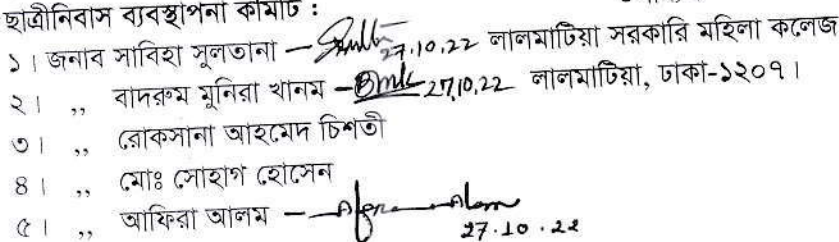 ছাত্রীনিবাস ব্যবস্থাপনা কমিটি :
১। জনাব সাবিহা সুলতানা – 27.10.22 লালমাটিয়া সরকারি মহিলা কলেজ
২। ,, বাদরুম মুনিরা খানম – 27,10,22 লালমাটিয়া, ঢাকা-১২০৭।
৩। ,, রোকসানা আহমেদ চিশতী
৪। ,, মোঃ সোহাগ হোসেন
৫। ,, আফিরা আলম –
27.10.22